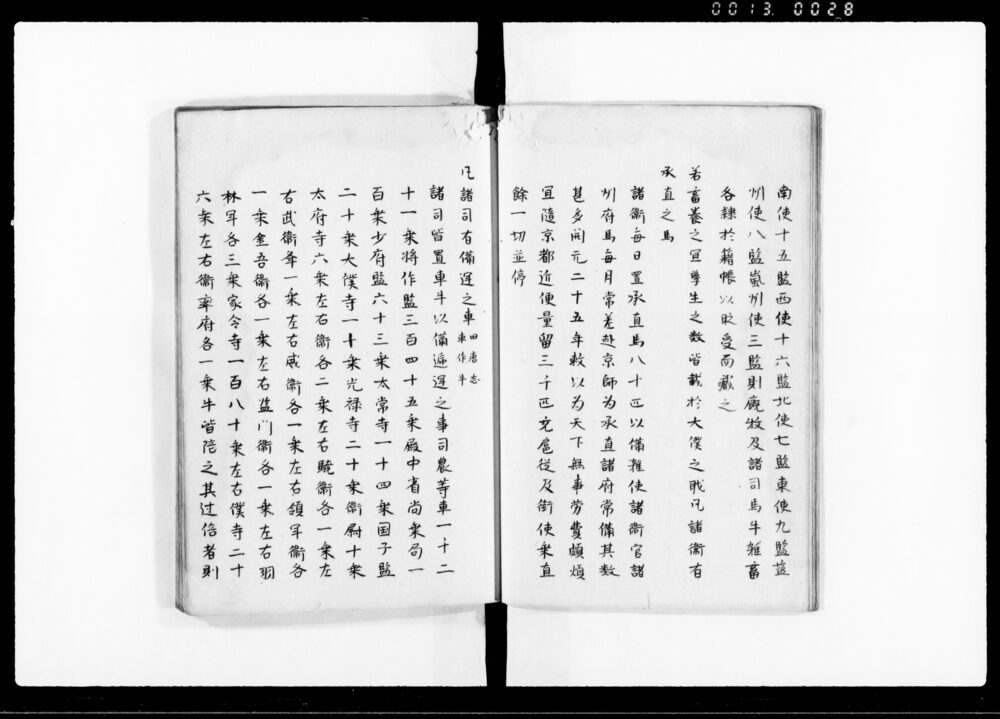 0013. 0028
南使十五監西使十六監北使七監東使九監監
州使八監嵐州使三監則廐牧及諸司馬牛雜畜
各隸於籍帳以受而藏之
若畜養之宜孳生之数皆載於大僕之職凡諸衛有
承直之馬
諸衛每日置承直馬八十匹以備雜使諸衛官諸
州府馬每月常差赴京師为承直諸府常備其数
甚多開元二十五年敕以为天下無事劳費頗煩
宜隨京都近便量留三千匹充扈從及街使乘直
餘一切並停
凡諸司有備運之車 旧唐志車作牛
諸司皆置車牛以備遞運之事司農等車一十二
十一乘将作監三百四十五乘殿中省尚乘局一
百乘少府監六十三乘太常寺一十四乘国子監
二十乘大僕寺一十乘光禄寺二十乘衛尉十乘
太府寺六乘左右衛各二乘左右驍衛各一乘左
右武衛各一乘左右威衛各一乘左右領軍衛各
一乘金吾衛各一乘左右监门衛各一乘左右羽
林军各三乘家令寺一百八十乘左右僕寺二十
六乘左右衛率府各一乘牛皆倍之其过倍者則